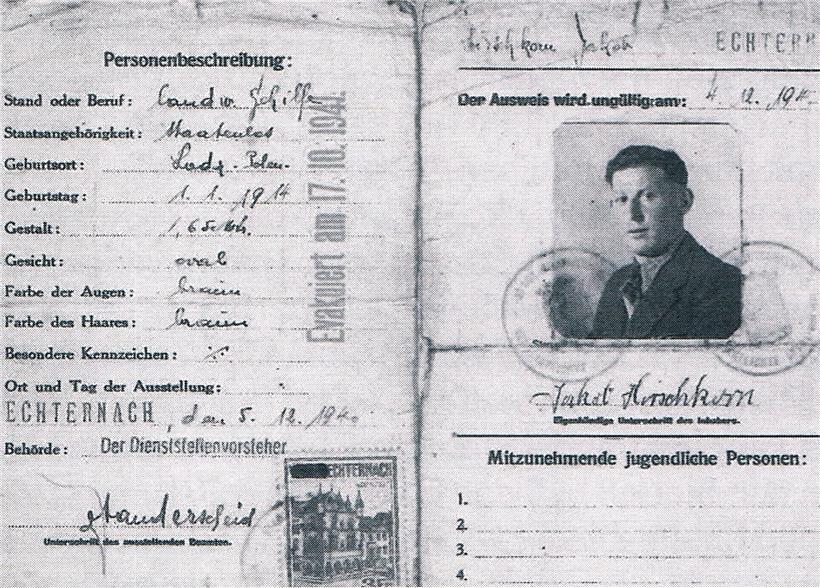 Personenbeschreibung:
Stand oder Beruf: Landw. Gehilfe
Staatsangehörigkeit: Staatenlos
Geburtsort: Lodz - Polen -
Geburtstag: 1. 1. 1914
Gestalt: 1,65
Gesicht: oval
Farbe der Augen: braun
Farbe des Haares: braun
Besondere Kennzeichen: ·/.
Ort und Tag der Ausstellung:
ECHTERNACH, den 5. 12. 194
Behörde: Der Dienststellenvorsteher
Unterschrift des ausstellenden Beamten.
ECHTERNACH
Evakuiert am 17. 10. 1941.
Hirschkorn Jakob ECHTERN
Der Ausweis wird ungültig am: 4 12. 194
Jakob Hirschkorn
Eigenhändige Unterschrift des Inhabers.
Mitzunehmende jugendliche Personen:
1.
2.
3.
4.